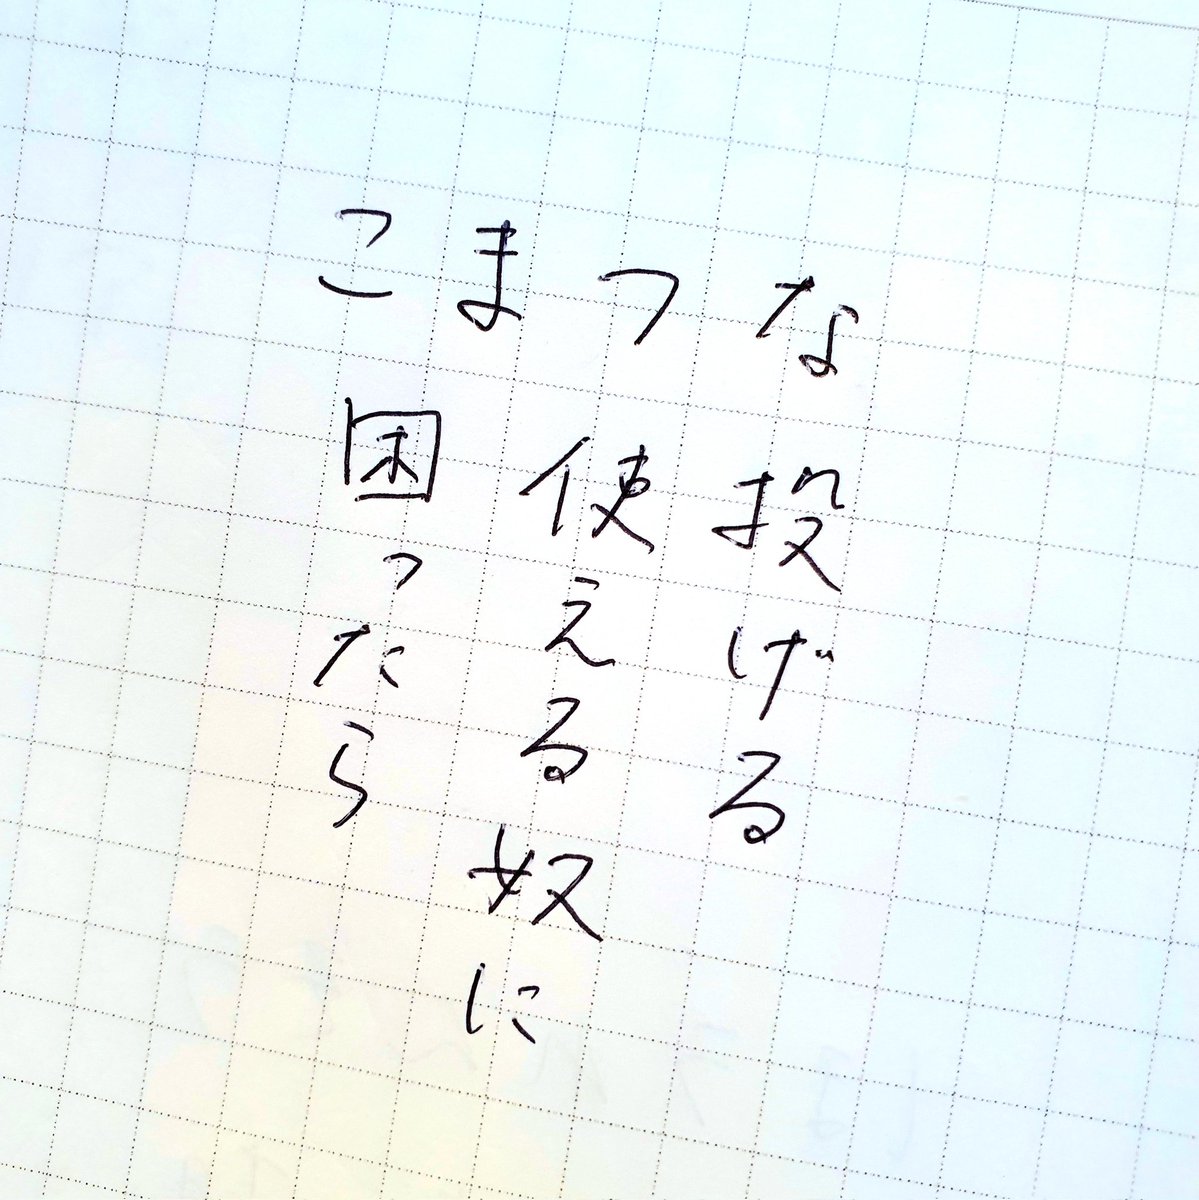 こまつな
困ったら
使える奴に
投げる